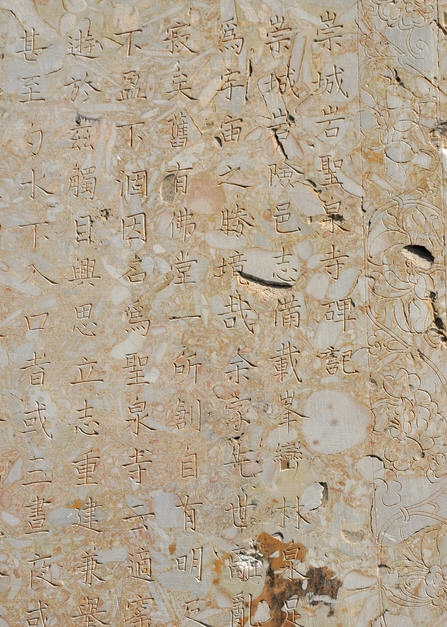 崇城岩聖泉寺碑記
崇城岩險邑志備載峯奇林
爲宇宙之勝境哉余家先世
寂矣舊有佛堂一所創自有明
不盈不涸因名爲聖泉寺云適
遊於茲觸目興思立志重建兼舉
甚至勺水不入口者或三晝夜或